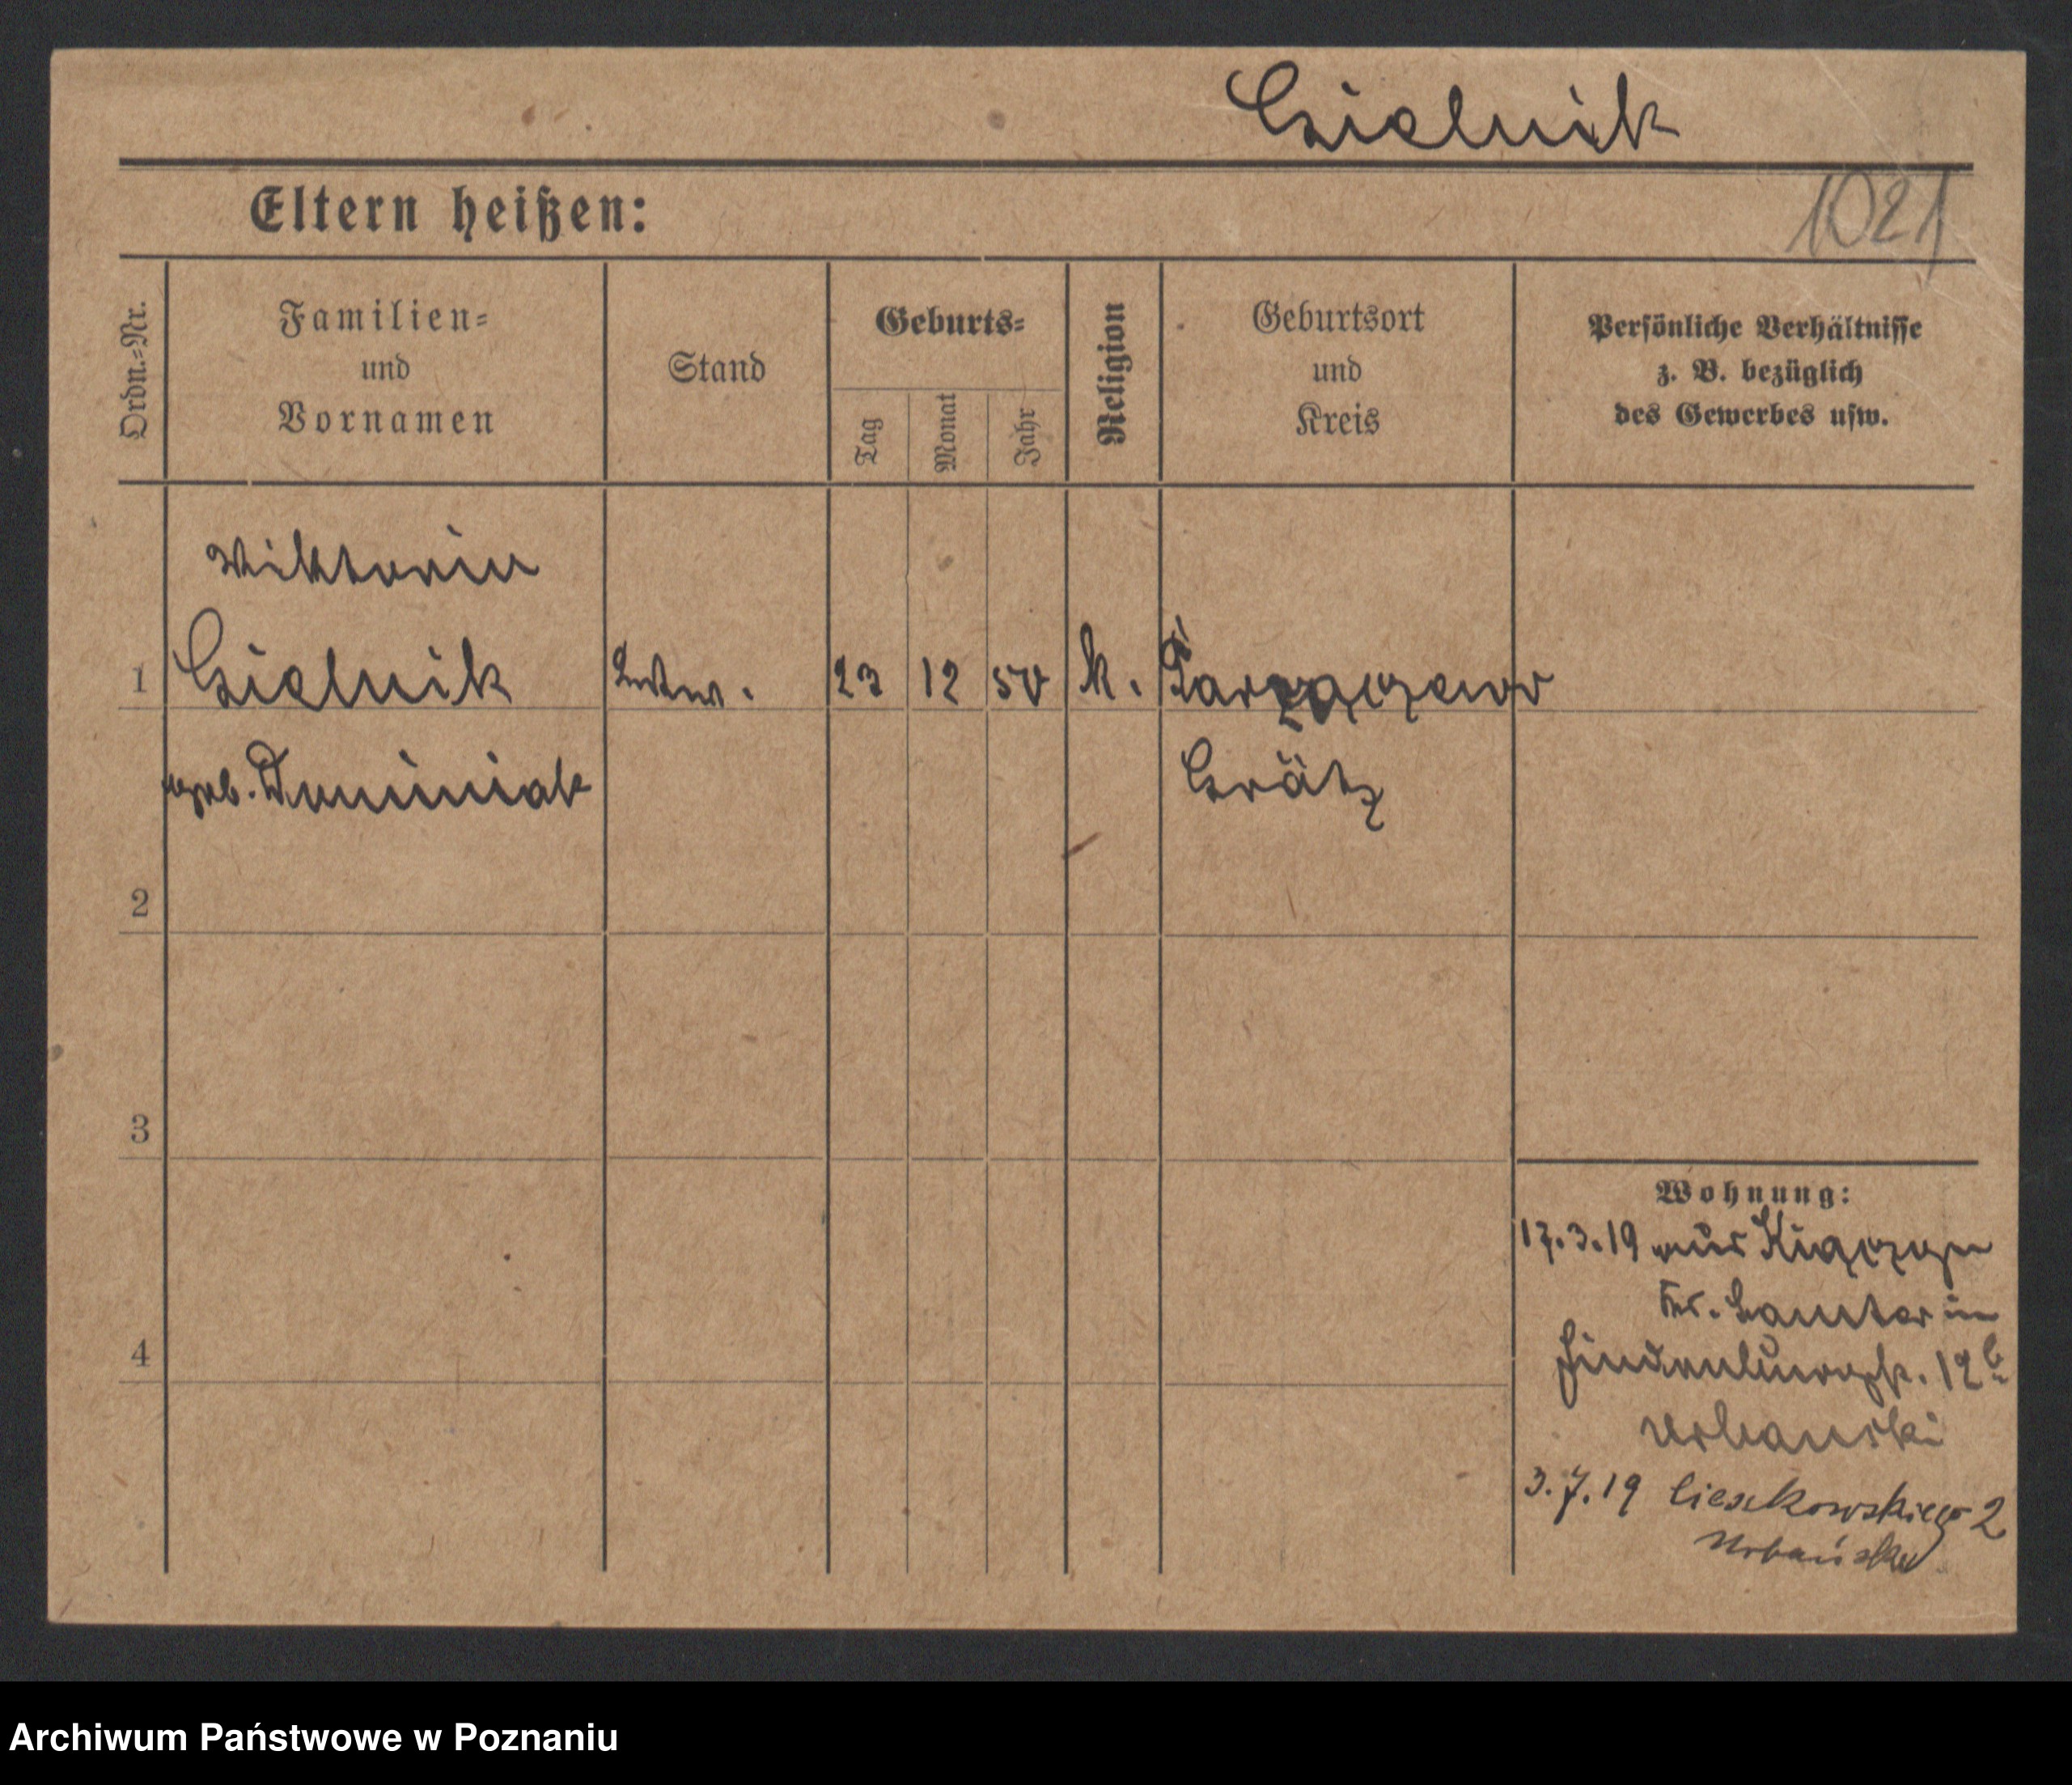 Cielnik
1021
Eltern heißen:
Ordn.-Nr.
Familien-
und
Vornamen
Stand
Geburts-
Tag
Monat
Jahr
Religion
Geburtsort
und
Kreis
Persönliche Verhältnisse
z. B. bezüglich
des Gewerbes usw.
Viktoria
1 Cielnik 23 12 50 k.
geb. Dominiak Grätz
2
3
4
Wohnung:
17.3.19 aus
Kr. Samter in
Hindenburgstr. 12b
Urbanski
3.7.19 Cieszkowskiego 2
Urbański
Archiwum Państwowe w Poznaniu